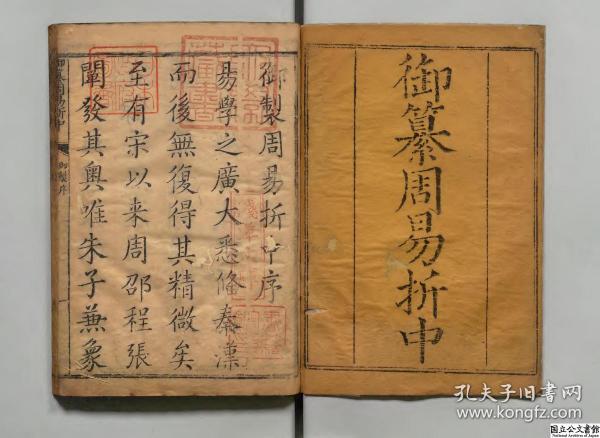 御纂周易折中
御製周易折中序
易學之廣大悉備秦漢
而後無復得其精微矣
至有宋以来周邵程張
闡發其奧唯朱子兼象
御纂周易折中
御製序
孔夫子旧书网
www.kongfz.com
国立公文書館
National Archives of Japan